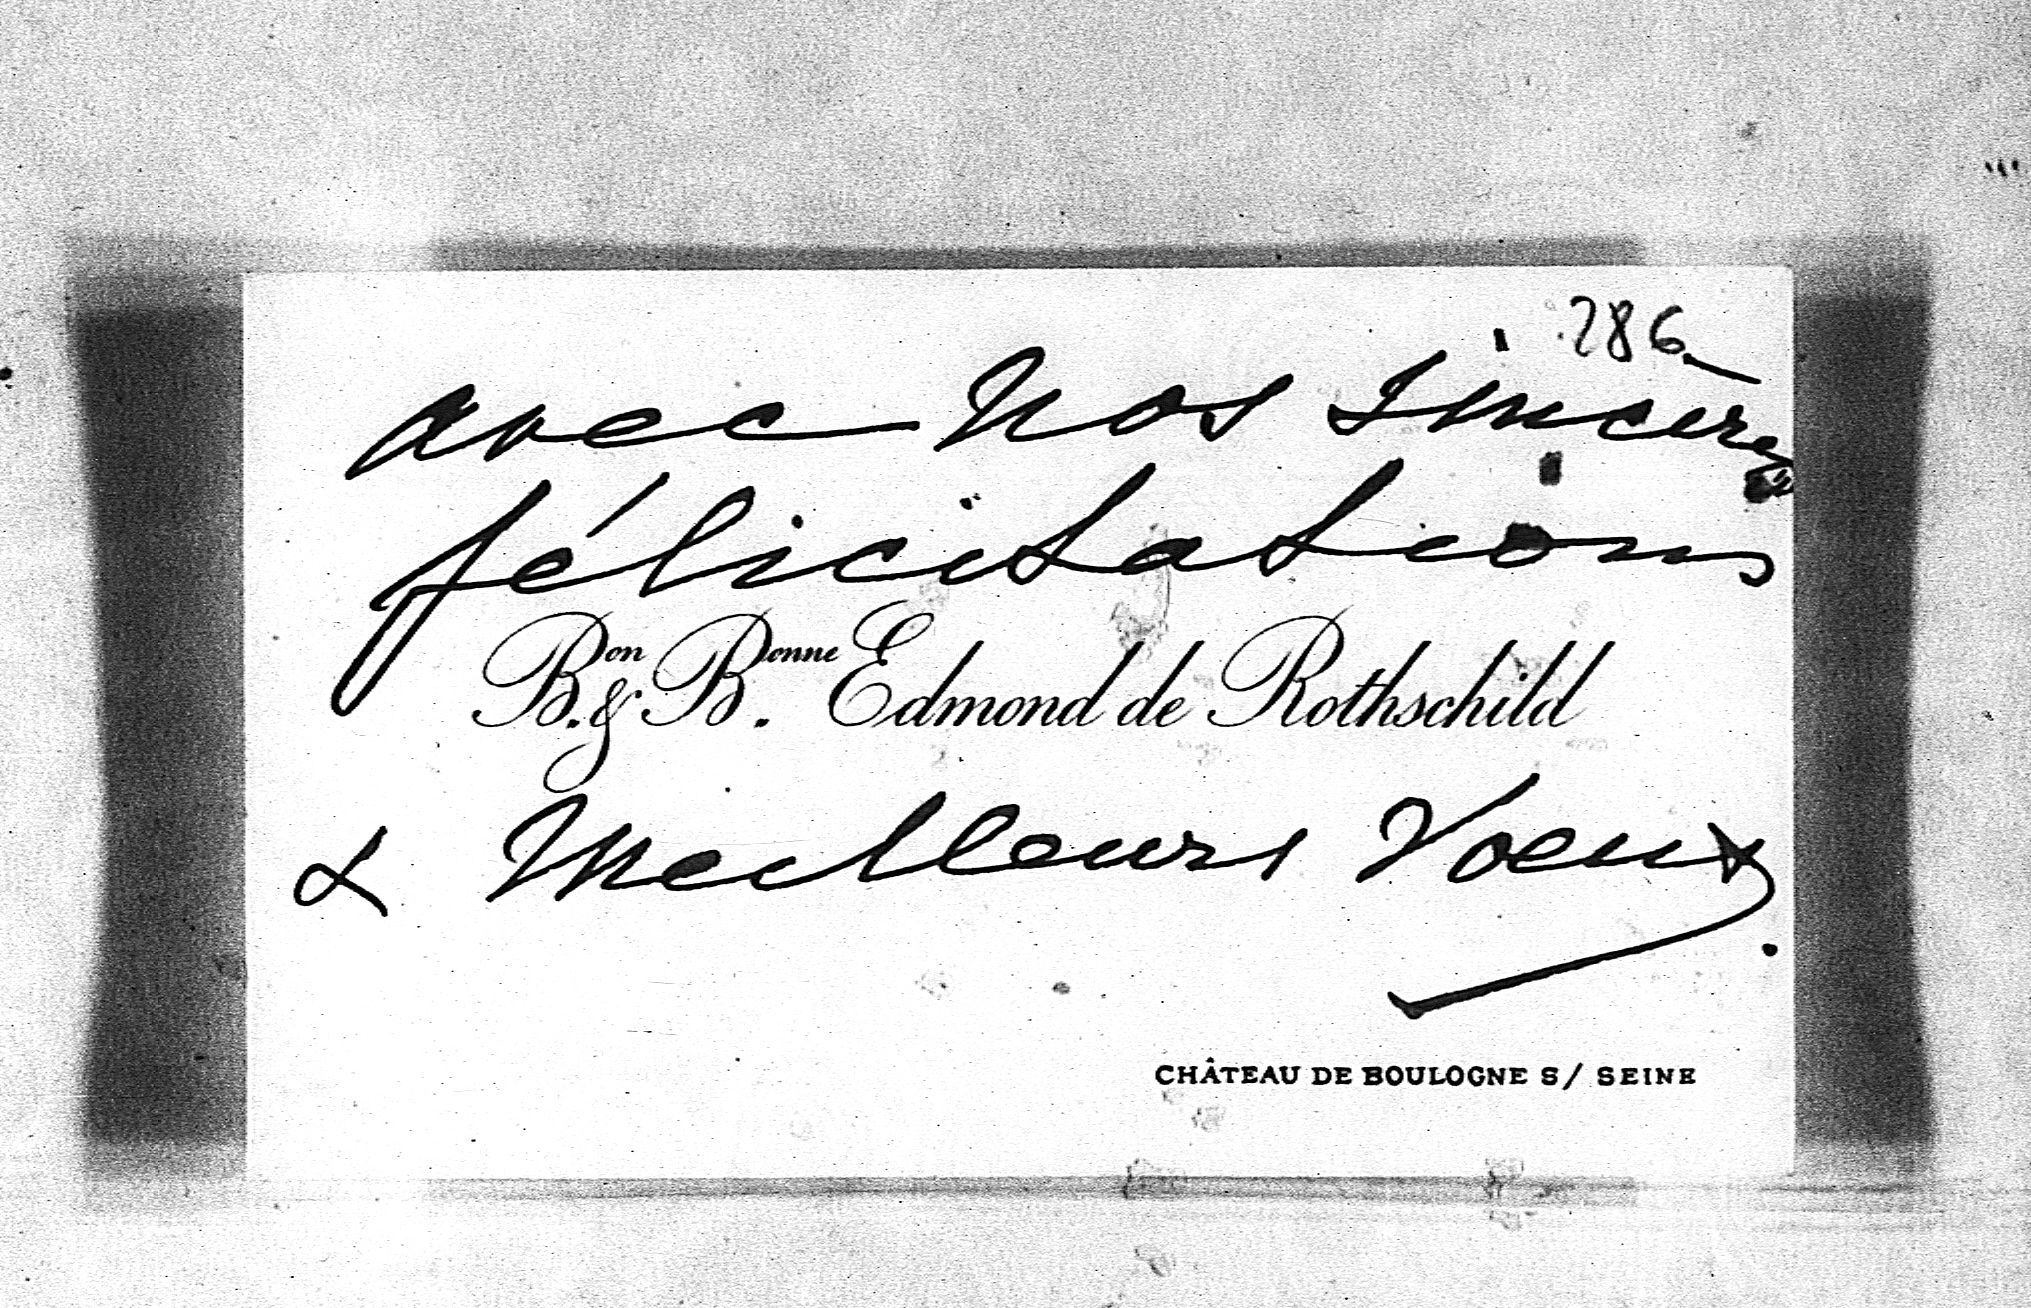 286
avec nos sincères
félicitations
Bon. & Bonne. Edmond de Rothschild
& Meilleurs Voeux.
CHÂTEAU DE BOULOGNE S/ SEINE